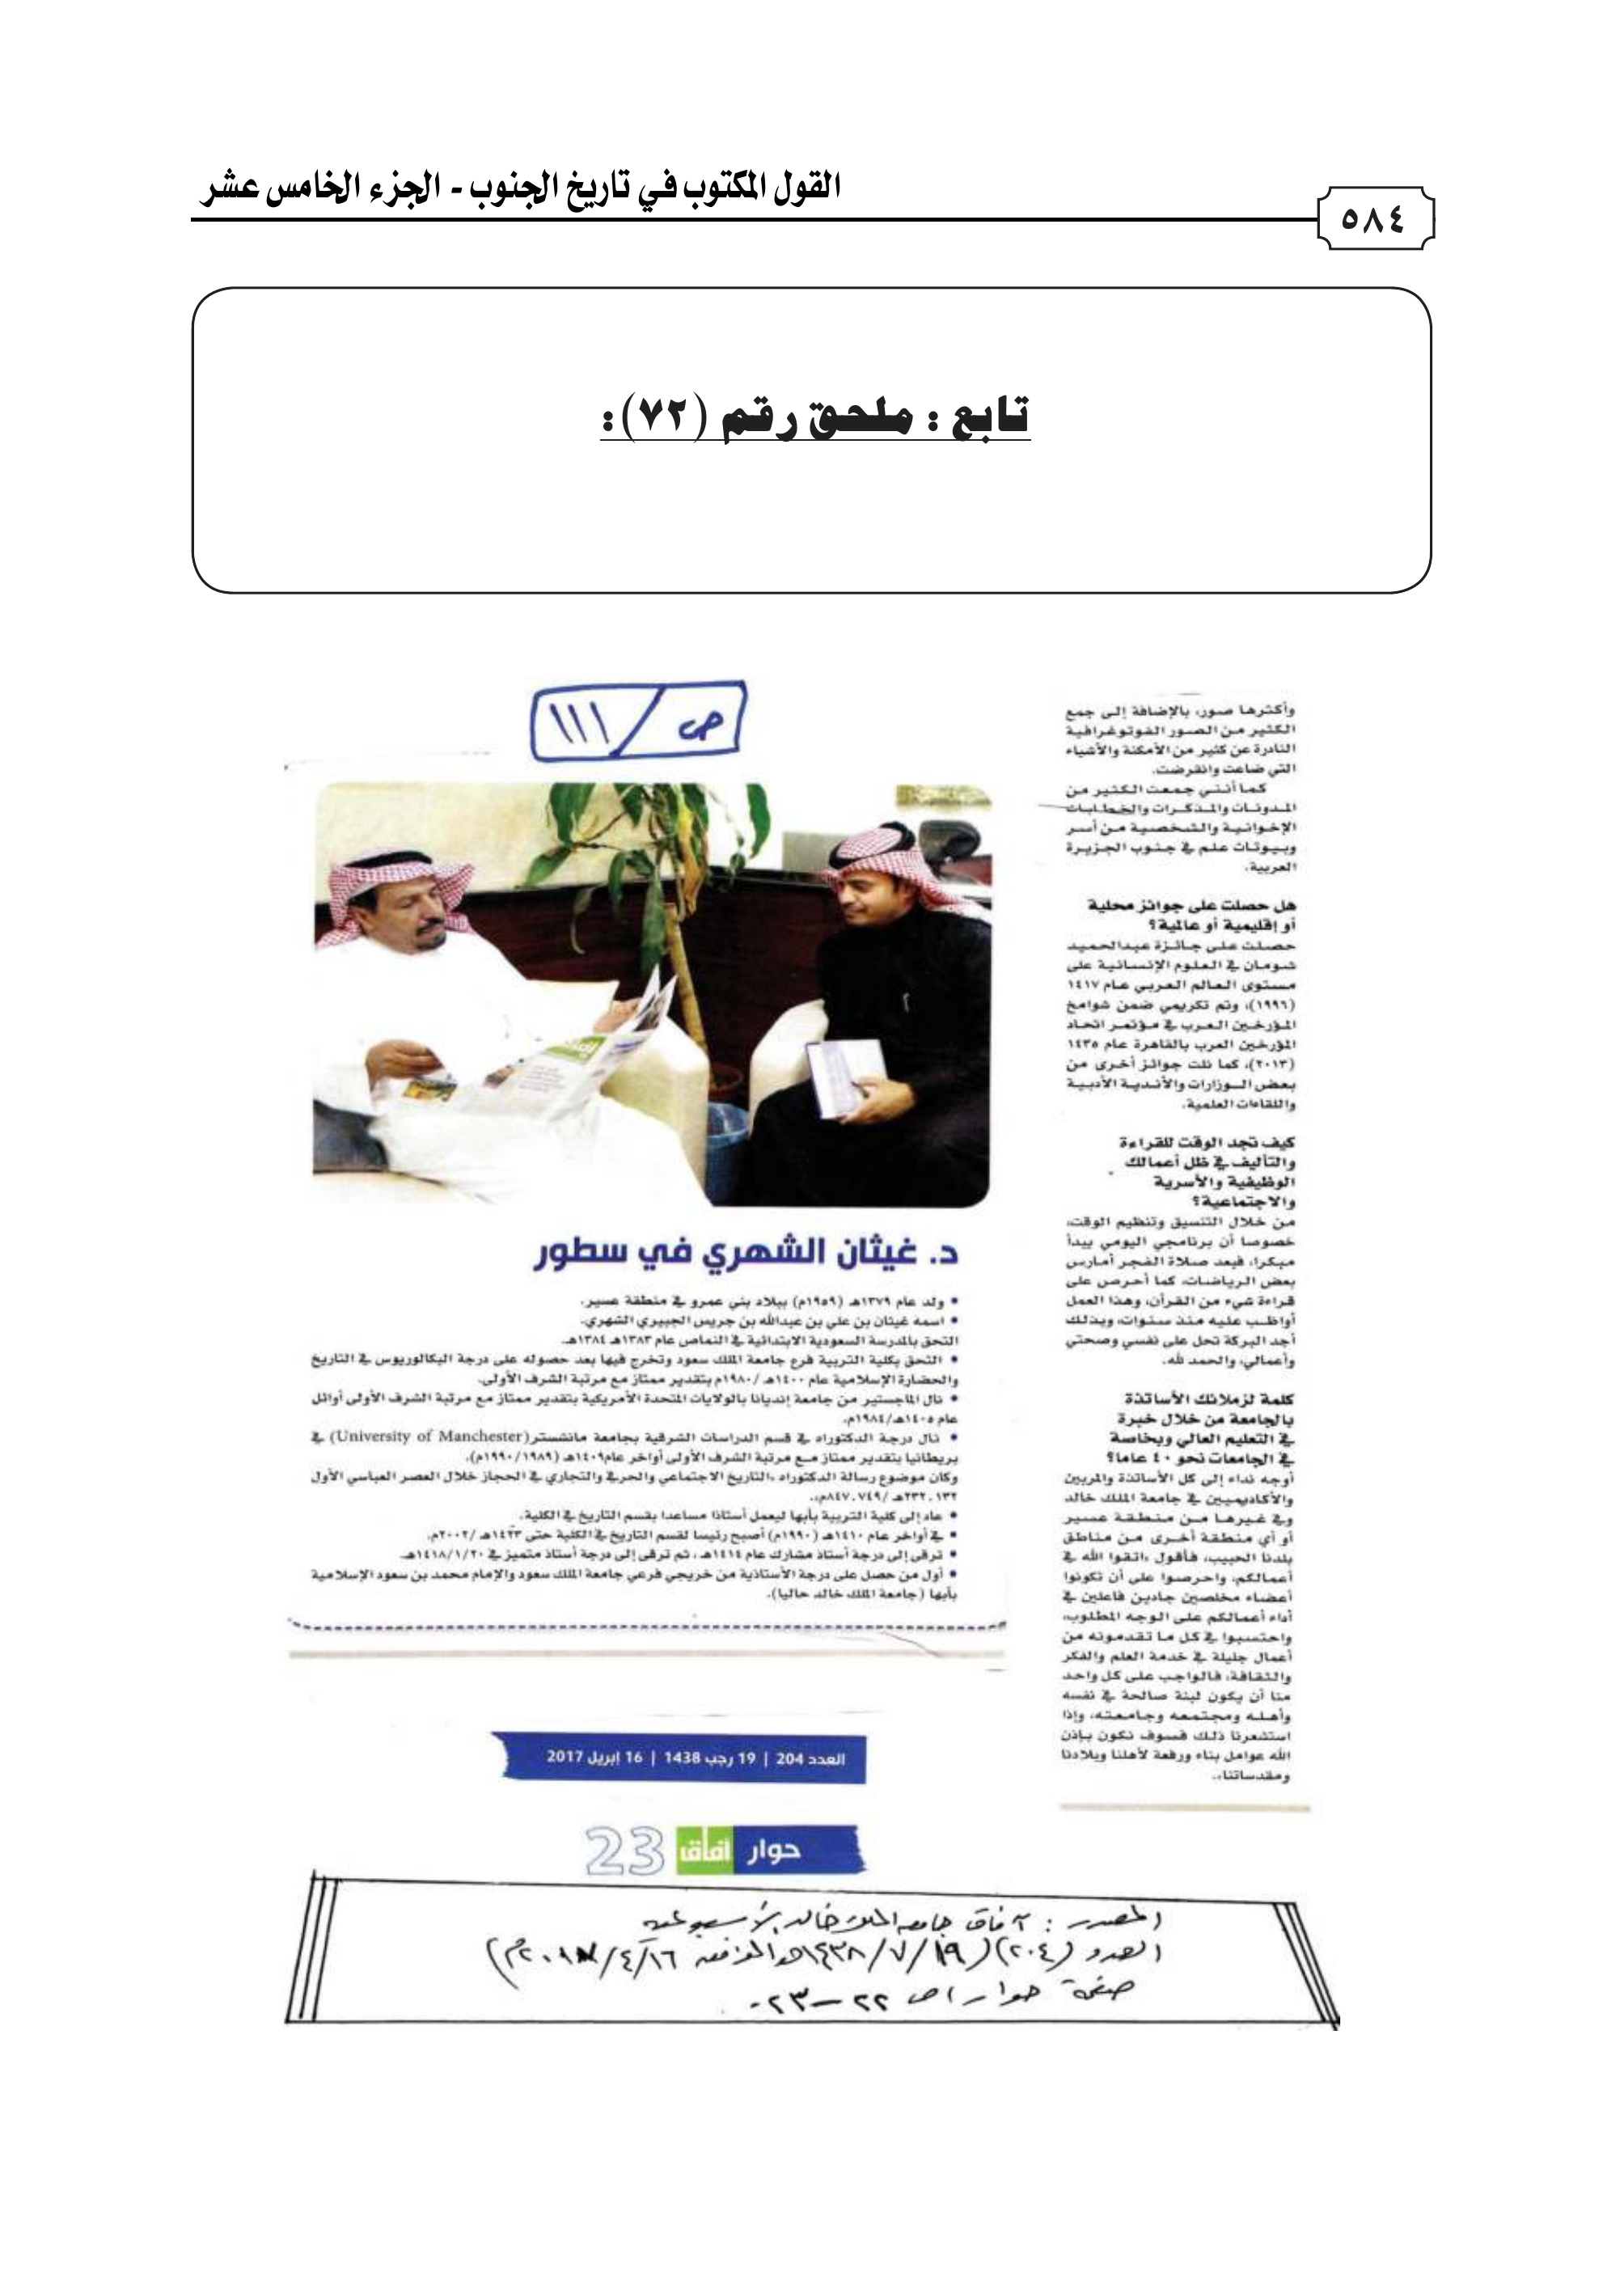 القول المكتوب في تاريخ الجنوب - الجزء الخامس عشر
٥٨٤
تابع : ملحق رقم (٧٢):
ص / ١١١
وأكثرها صور، بالإضافة إلى جمع
الكثير من الصور الفوتوغرافية
النادرة عن كثير من الأمكنة والأشياء
التي ضاعت وانقرضت.
كما أنني جمعت الكثير من
المدونات والمذكرات والخطابات
الإخوانية والشخصية من أسر
وبيوتات علم في جنوب الجزيرة
العربية.
هل حصلت على جوائز محلية
أو إقليمية أو عالمية؟
حصلت على جائزة عبدالحميد
شومان في العلوم الإنسانية على
مستوى العالم العربي عام ١٤١٧
(١٩٩٦)، وتم تكريمي ضمن شوامخ
المؤرخين العرب في مؤتمر اتحاد
المؤرخين العرب بالقاهرة عام ١٤٣٥
(٢٠١٣)، كما نلت جوائز أخرى من
بعض الوزارات والأندية الأدبية
واللقاءات العلمية.
كيف تجد الوقت للقراءة
والتأليف في ظل أعمالك
الوظيفية والأسرية
والاجتماعية؟
من خلال التنسيق وتنظيم الوقت،
خصوصا أن برنامجي اليومي يبدأ
مبكرا، فبعد صلاة الفجر أمارس
بعض الرياضات، كما أحرص على
قراءة شيء من القرآن، وهذا العمل
أواظب عليه منذ سنوات، وبذلك
أجد البركة تحل على نفسي وصحتي
وأعمالي، والحمد لله.
كلمة لزملائك الأساتذة
بالجامعة من خلال خبرة
في التعليم العالي وبخاصة
في الجامعات نحو ٤٠ عاما؟
أوجه نداء إلى كل الأساتذة والمربين
والأكاديميين في جامعة الملك خالد
وفي غيرها من منطقة عسير
أو أي منطقة أخرى من مناطق
بلدنا الحبيب، فأقول «اتقوا الله في
أعمالكم، واحرصوا على أن تكونوا
أعضاء مخلصين جادين فاعلين في
أداء أعمالكم على الوجه المطلوب،
واحتسبوا في كل ما تقدمونه من
أعمال جليلة في خدمة العلم والفكر
والثقافة، فالواجب على كل واحد
منا أن يكون لبنة صالحة في نفسه
وأهله ومجتمعه وجامعته، وإذا
استشعرنا ذلك فسوف نكون بإذن
الله عوامل بناء ورفعة لأهلنا وبلادنا
ومقدساتنا».
آفاق
د. غيثان الشهري في سطور
• ولد عام ١٣٧٩هـ (١٩٥٩م) ببلاد بني عمرو في منطقة عسير.
• اسمه غيثان بن علي بن عبدالله بن جريس الجبيري الشهري.
التحق بالمدرسة السعودية الابتدائية في النماص عام ١٣٨٣هـ ١٣٨٤هـ.
• التحق بكلية التربية فرع جامعة الملك سعود وتخرج فيها بعد حصوله على درجة البكالوريوس في التاريخ
والحضارة الإسلامية عام ١٤٠٠هـ /١٩٨٠م بتقدير ممتاز مع مرتبة الشرف الأولى.
• نال الماجستير من جامعة إنديانا بالولايات المتحدة الأمريكية بتقدير ممتاز مع مرتبة الشرف الأولى أوائل
عام ١٤٠٥هـ/١٩٨٤م.
• نال درجة الدكتوراه في قسم الدراسات الشرقية بجامعة مانشستر(University of Manchester) في
بريطانيا بتقدير ممتاز مع مرتبة الشرف الأولى أواخر عام١٤٠٩هـ (١٩٨٩/ ١٩٩٠م).
وكان موضوع رسالة الدكتوراه «التاريخ الاجتماعي والحرفي والتجاري في الحجاز خلال العصر العباسي الأول
١٣٢ـ٢٣٢هـ /٧٤٩ـ٨٤٧م».
• عاد إلى كلية التربية بأبها ليعمل أستاذا مساعدا بقسم التاريخ في الكلية.
• في أواخر عام ١٤١٠هـ (١٩٩٠م) أصبح رئيسا لقسم التاريخ في الكلية حتى ١٤٢٣هـ /٢٠٠٢م.
• ترقى إلى درجة أستاذ مشارك عام ١٤١٤هـ ، ثم ترقى إلى درجة أستاذ متميز في ١٤١٨/١/٢٠هـ.
• أول من حصل على درجة الأستاذية من خريجي فرعي جامعة الملك سعود والإمام محمد بن سعود الإسلامية
بأبها (جامعة الملك خالد حاليا).
العدد 204 | 19 رجب 1438 | 16 إبريل 2017
حوار آفاق 23
المصدر : آفاق جامعة الملك خالد الأسبوعية
العدد (٢٠٤) (١٩/٧/١٤٣٨هـ الموافق ١٦/٤/٢٠١٧م)
صفحة حوار، ص ٢٢ — ٢٣.